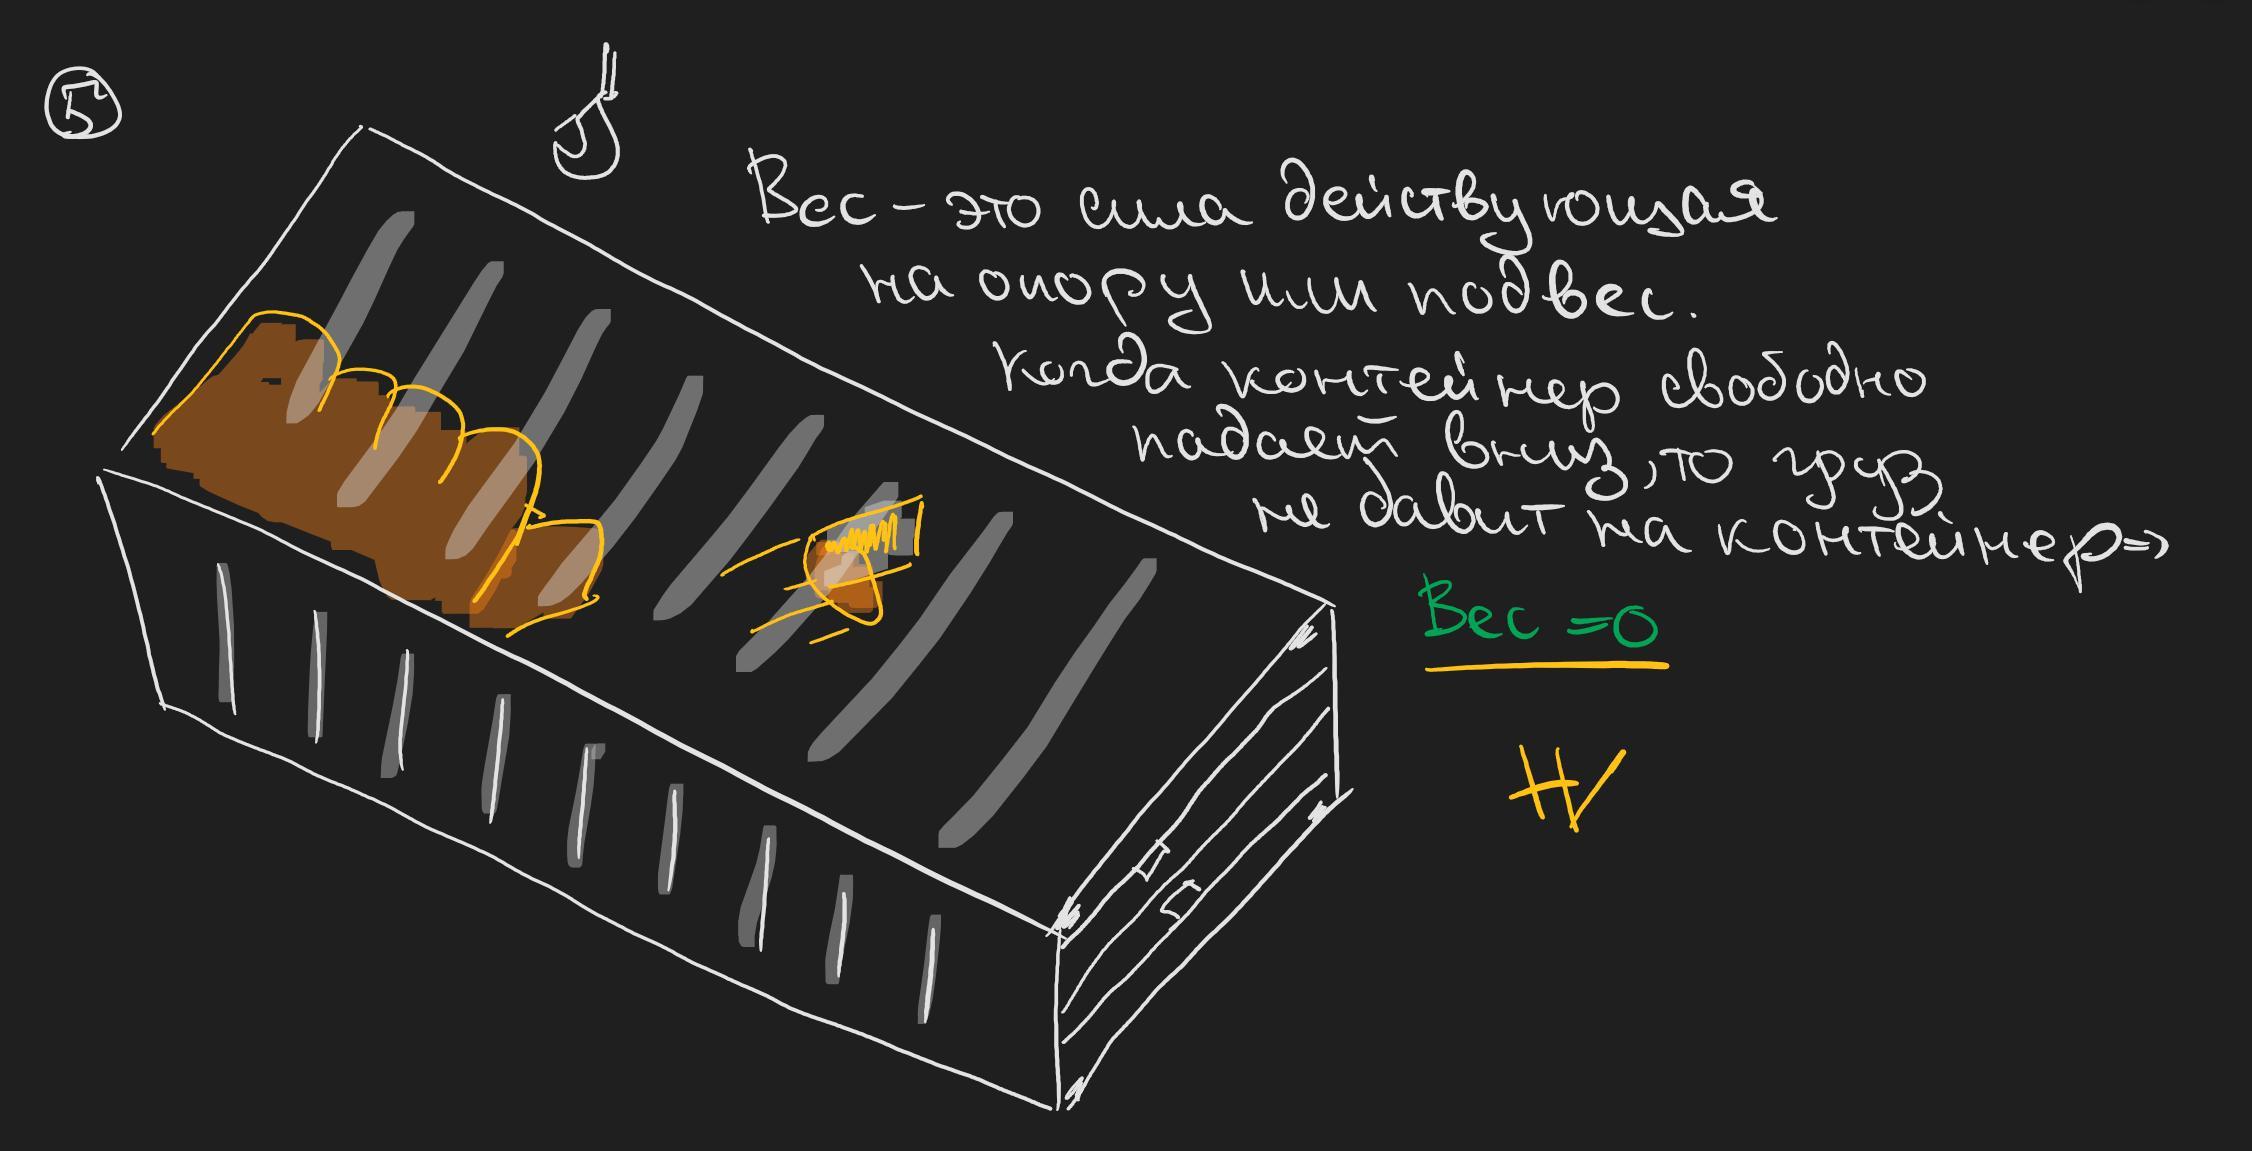 5
Вес - это сила действующая
на опору или подвес.
Когда контейнер свободно
падает вниз, то груз
не давит на контейнер=>
Вес = 0